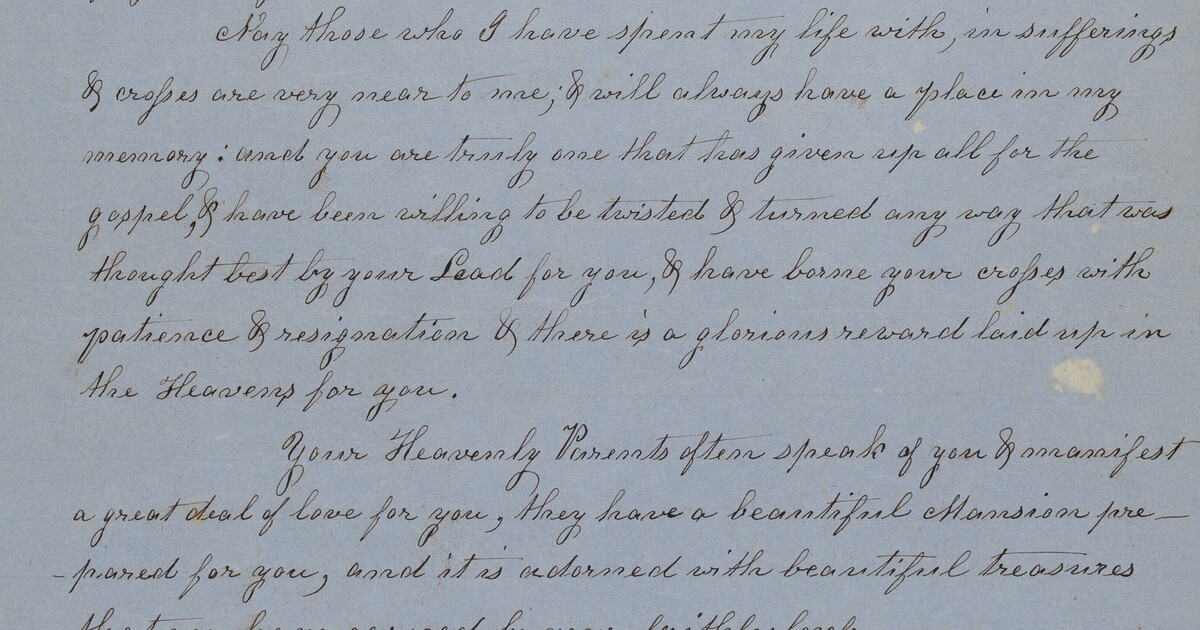 Nay those who I have spent my life with, in sufferings
& crosses are very near to me; & will always have a place in my
memory: and you are truly one that has given up all for the
gospel, & have been willing to be twisted & turned any way that was
thought best by your Lead for you, & have borne your crosses with
patience & resignation & there is a glorious reward laid up in
the Heavens for you.
Your Heavenly Parents often speak of you & manifest
a great deal of love for you, they have a beautiful Mansion pre-
-pared for you, and it is adorned with beautiful treasures